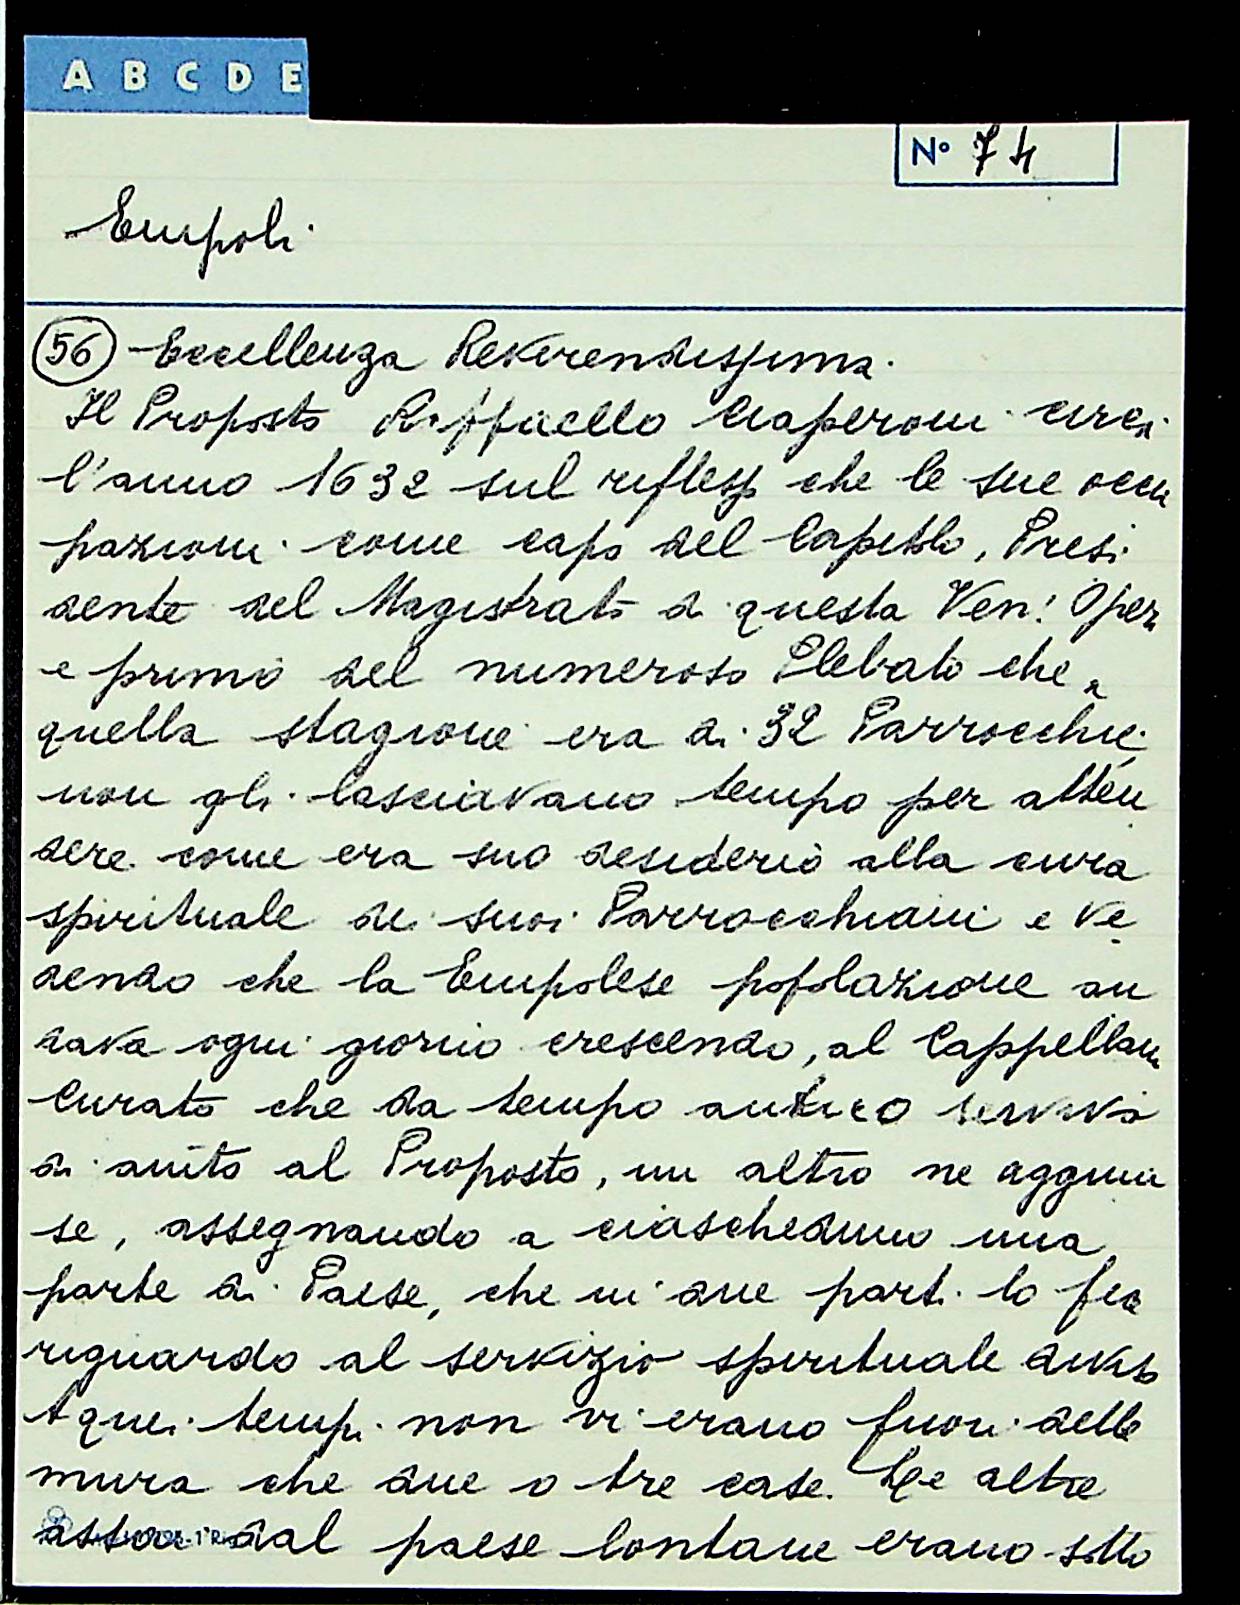 A B C D E
N° 74
Empoli.
56 Eccellenza Reverendissima.
Il Proposto Raffaello Ciaperoni circa
l'anno 1632 sul rifless che le sue occu
pazioni come capo del Capitolo, Presi
dente del Magistrato di questa Ven! Opera
e primo del numeroso Plebato che a
quella stagione era di 32 Parrocchie
non gli lasciavano tempo per atten
dere come era suo desiderio alla cura
spirituale dei suoi Parrocchiani e ve
dendo che la Empolese popolazione an
dava ogni giorno crescendo, al Cappellan
Curato che da tempo antico serviva
di aiuto al Proposto, un altro ne aggiun
se, assegnando a ciascheduno una
parte di Paese, che in due parti lo fea
riguardo al servizio spirituale diviso
A quei tempi non vi erano fuori delle
mura che due o tre case. Le altre
assai dal paese lontane erano sotto